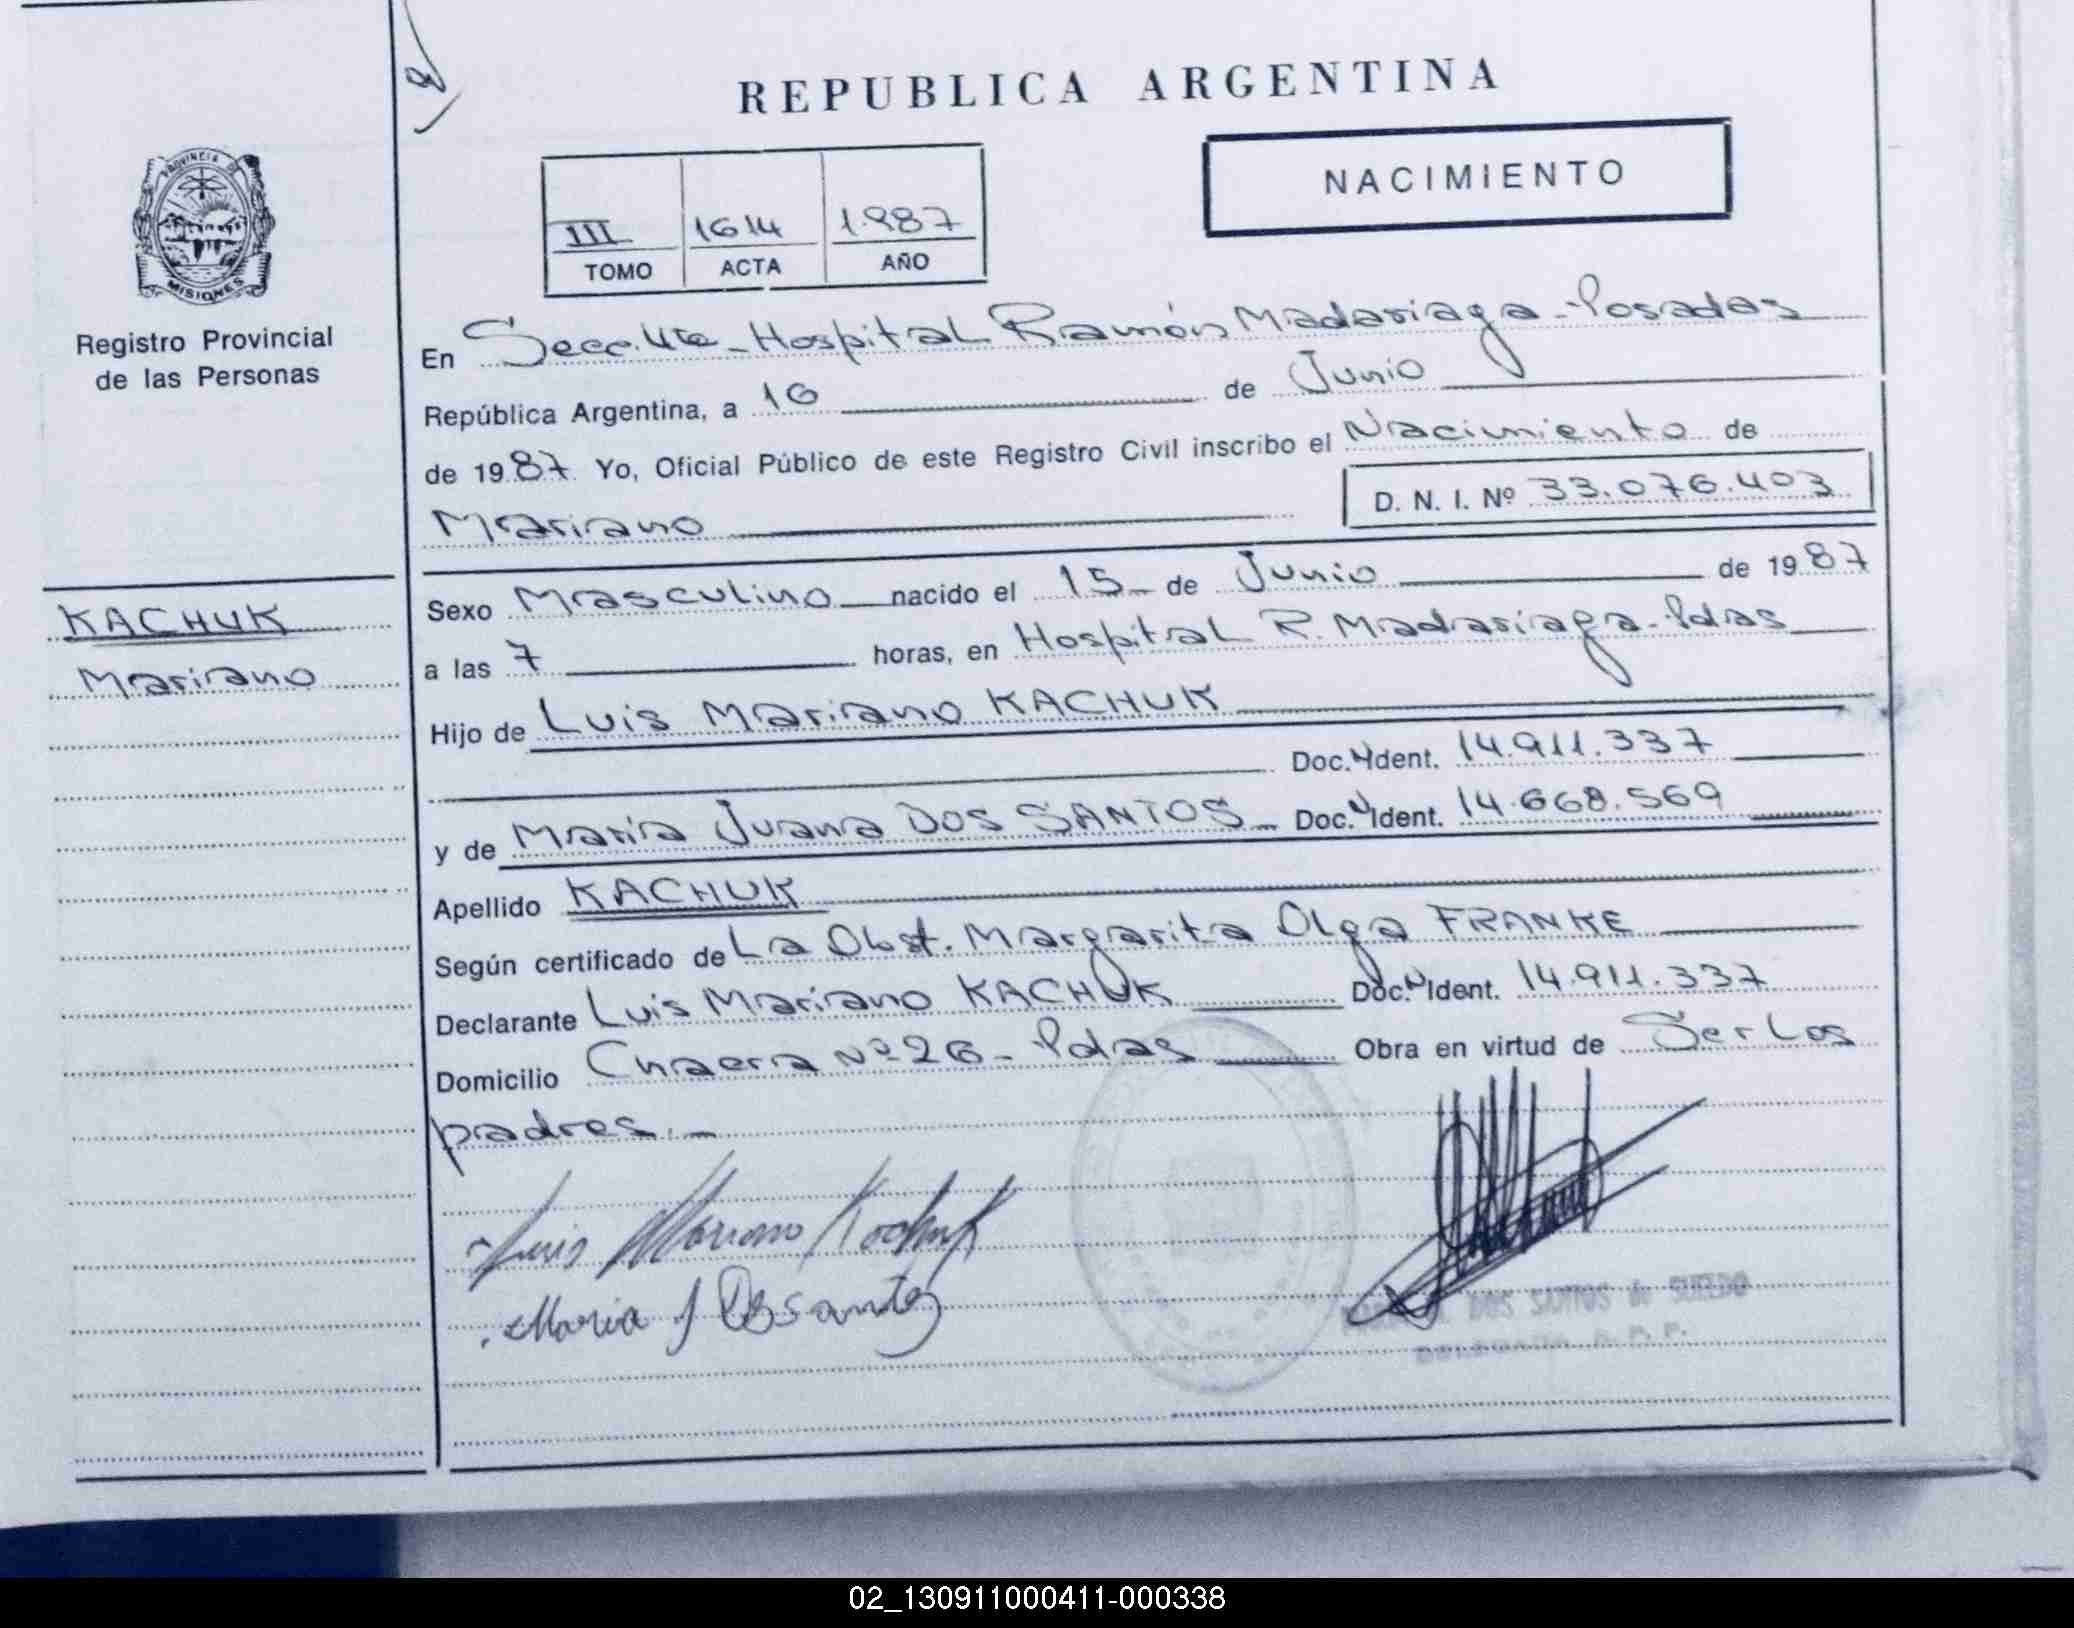 REPUBLICA ARGENTINA
NACIMIENTO
III 1614 1.987
TOMO ACTA AÑO
PROVINCIA DE
MISIONES
Registro Provincial
de las Personas
KACHUK
Mariano
En Secc. 4ta - Hospital Ramón Madariaga - Posadas
República Argentina, a 16 de Junio
de 1987 Yo, Oficial Público de este Registro Civil inscribo el Nacimiento de
Mariano D. N. I. Nº 33.076.403
Sexo Masculino nacido el 15 de Junio de 1987
a las 7 horas, en Hospital R. Madariaga - Pdas
Hijo de Luis Mariano KACHUK
Doc. Ident. 14.911.337
y de María Juana DOS SANTOS Doc. Ident. 14.668.569
Apellido KACHUK
Según certificado de La Obst. Margarita Olga FRANKE
Declarante Luis Mariano KACHUK Doc. Ident. 14.911.337
Domicilio Chacra Nº 26 - Pdas Obra en virtud de Ser Los
padres. -
Luis Mariano Kachuk
Maria J Dos santos
DOS SANTOS de
02_130911000411-000338